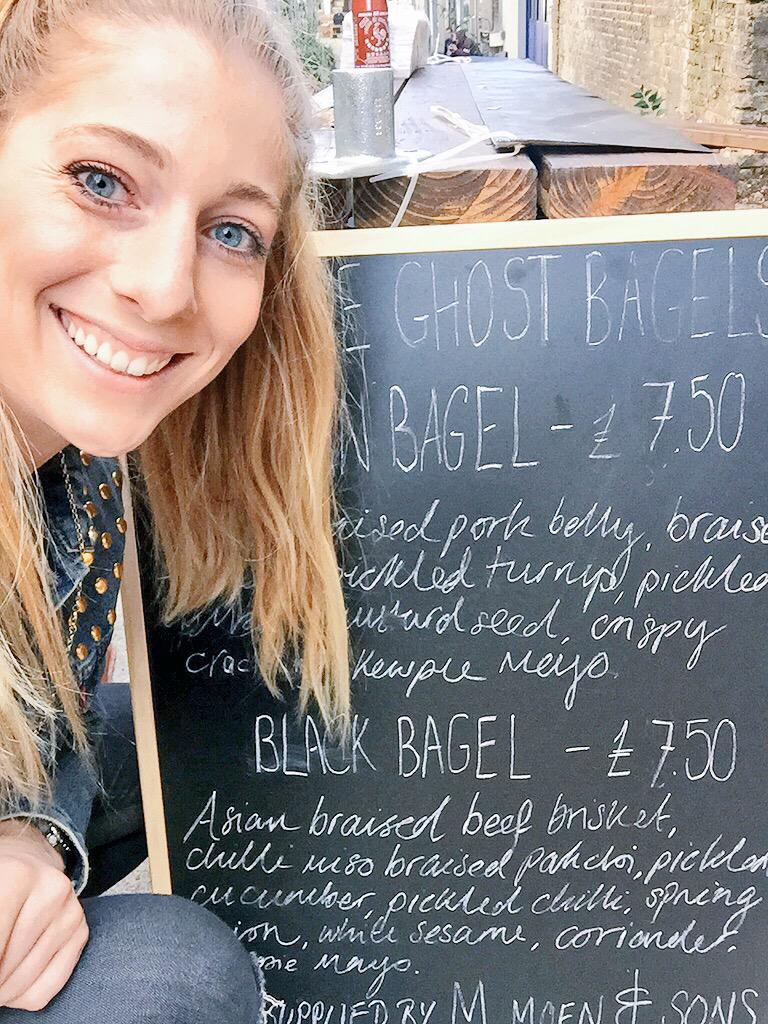 E GHOST BAGELS
N BAGEL - £7.50
aised pork belly, braise
ickled turnip, pickled
ustard seed, crispy
crac Kewpie Mayo.
BLACK BAGEL - £7.50
Asian braised beef brisket,
chilli miso braised pakchoi, pickled
cucumber, pickled chilli, spring
ion, white sesame, coriander,
pie Mayo.
SUPPLIED BY M MOEN & SONS